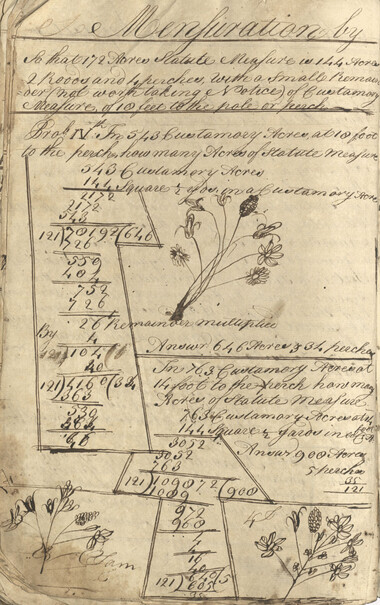 Mensuration by
So that 172 Acres Statute Measure is 144 Acres
2 Roods and 4 perches, with a Small Remain
der (not worth taking Notice) of Customary
Measure of 18 feet to the pole or perch
Prob IVth In 543 Customary Acres, at 18 foot
to the perch, how many Acres of Statute Measure
543 Customary Acres
144 Square ½ yds. in a Customary Acre
2172
2172
543
121)78192(646
726
559
484
752
726
26 Remainder multiplied
By 4
121)104
40
121)4160(34
363
530
484
46
Answr 646 Acres & 34 perches
In 763 Customary Acres at
foot to the perch how many
Acres of Statute Measure
763 Customary Acres at
144 Square ½ yards in
3052
3052
763
Answr 908 Acres
5 perches
35
121
121)109872(908
1089
972
968
4
4
16
40
121)640(5
605